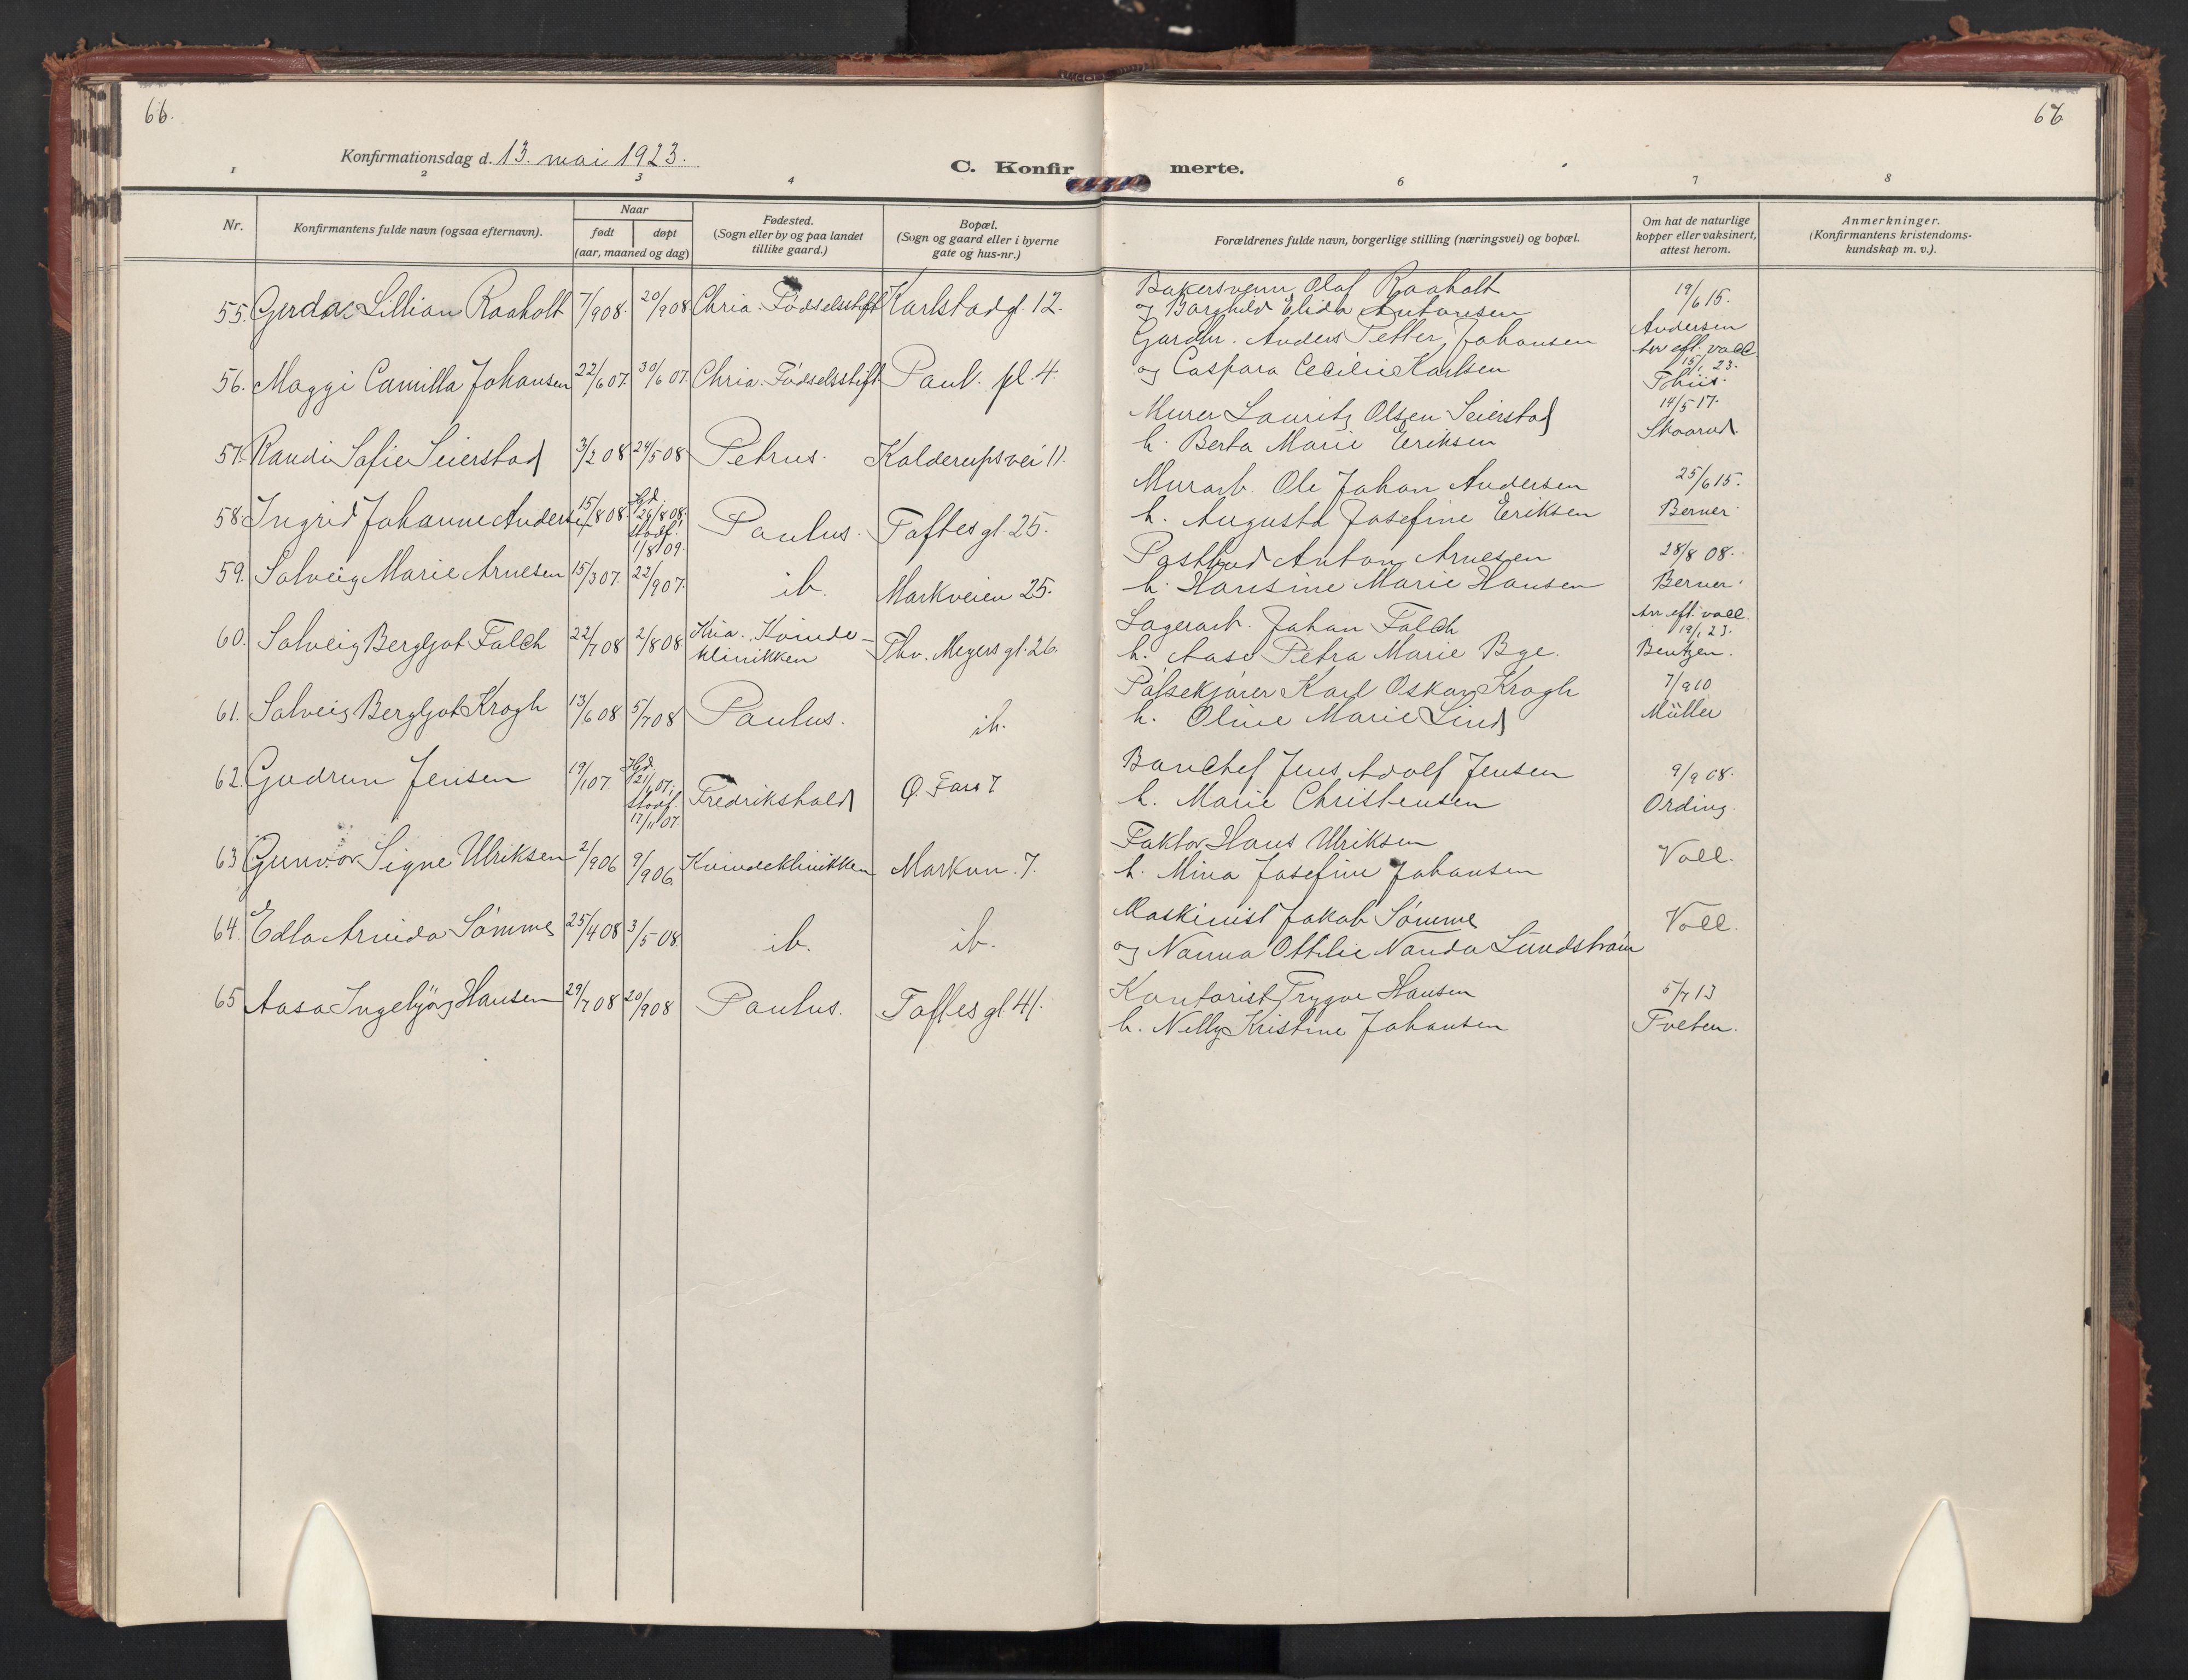 66.
66
Konfirmationsdag d. 13. mai 1923.
C. Konfirmerte.
1 2 3 4 6 7 8
Nr.
Konfirmantens fulde navn (ogsaa efternavn).
Naar
født døpt
(aar, maaned og dag)
Fødested.
(Sogn eller by og paa landet
tillike gaard.)
Bopæl.
(Sogn og gaard eller i byerne
gate og hus-nr.)
Forældrenes fulde navn, borgerlige stilling (næringsvei) og bopæl.
Om hat de naturlige
kopper eller vaksinert,
attest herom.
Anmerkninger.
(Konfirmantens kristendoms-
kundskap m. v.).
55. Gerda Lillian Raaholt 7/9 08. 20/9 08 Chria. Fødselsstift Karlstadg. 12.
Bakersvenn Olaf Raaholt
og Borghild Elida Antonsen
19/6 15.
Andersen
56. Maggi Camilla Johansen 22/6 07. 30/6 07. Chria. Fødselsstift Paul. pl. 4.
Gardbr. Anders Petter Johansen
og Caspara Cecilie Karlsen
Arr eft. vacc.
15/1 23.
57. Randi Sofie Seierstad 3/2 08 24/5 08 Petrus. Kolderupsvei 11.
Murer Lauritz Olsen Seierstad
h. Berta Marie Eriksen
14/5 17.
Skaarud.
58. Ingrid Johanne Andersen 15/8 08. Hjd. 29/8 08. stadf. 1/8 09. Paulus. Toftesgt. 25.
Murarb. Ole Johan Andersen
h. Augusta Josefine Eriksen
25/6 15.
Berner.
59. Solveig Marie Arnesen 15/3 07. 22/9 07. ib. Markveien 25.
Postbud Anton Arnesen
h. Hansine Marie Hansen
28/8 08.
Berner.
60. Solveig Bergljot Falch 22/7 08 2/8 08 Kria. Kvinde-
klinikken Thv. Meyersgt. 26.
Lagerarb. Johan Falch
h. Aase Petra Marie Bye.
Arr eft. vacc.
19/1 23.
Bentzen.
61. Solveig Bergljot Krogh 13/6 08 5/7 08 Paulus. ib.
Pølsekjører Karl Oskar Krogh
h. Oline Marie Lind
7/9 10
Müller
62. Gudrun Jensen 19/1 07. Hjd. 21/1 07; stadf. 17/11 07 Fredrikshald Ø. Foss 7
Banchef Jens Adolf Jensen
h. Marie Christensen
9/9 08.
Ording.
63 Gunvor Signe Ulriksen 2/9 06 9/9 06. Kvindeklinikken Markvn. 7.
Faktor Hans Ulriksen
h. Mina Josefine Johansen
Voll.
64. Edla Arvida Sømme 25/4 08 3/5 08. ib. ib.
Maskinist Jakob Sømme
og Nanna Ottilie Nanda Lundstrøm
Voll.
65 Aasa Ingebjørg Hansen 29/7 08 20/9 08 Paulus. Toftesgt. 41.
Kontorist Trygve Hansen
h. Nelly Kristine Johansen
5/7 13
Tveten.